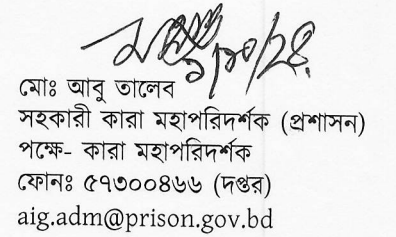 ১/১০/২৪
মোঃ আবু তালেব
সহকারী কারা মহাপরিদর্শক (প্রশাসন)
পক্ষে- কারা মহাপরিদর্শক
ফোনঃ ৫৭৩০০৪৬৬ (দপ্তর)
aig.adm@prison.gov.bd